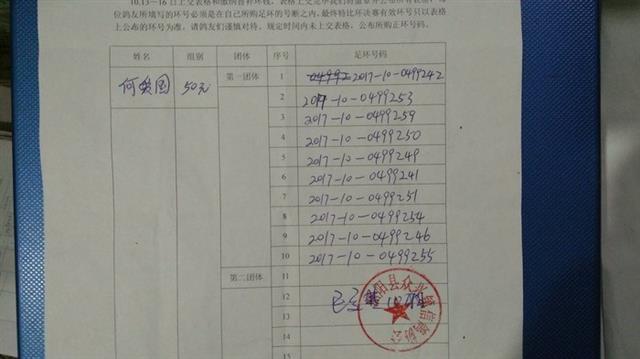 10.13—16日上交表格和缴纳普种环钱，表格上交完毕我们将盖章并公布所有表格，每
位鸽友所填写的环号必须是在自己所购足环的号断之内，最终特比环决赛有效环号只以表格
上公布的环号为准，请鸽友们谨慎对待，规定时间内未上交表格，公布所购正环号码。
姓名 组别 团体 序号 足环号码
何 国 50元 第一团体 1 2017-10-0499242
2 2017-10-0499253
3 2017-10-0499259
4 2017-10-0499250
5 2017-10-0499249
6 2017-10-0499241
7 2017-10-0499251
8 2017-10-0499254
9 2017-10-0499246
10 2017-10-0499255
第二团体 11
12
13
14
15
阳县众兴 信鸽